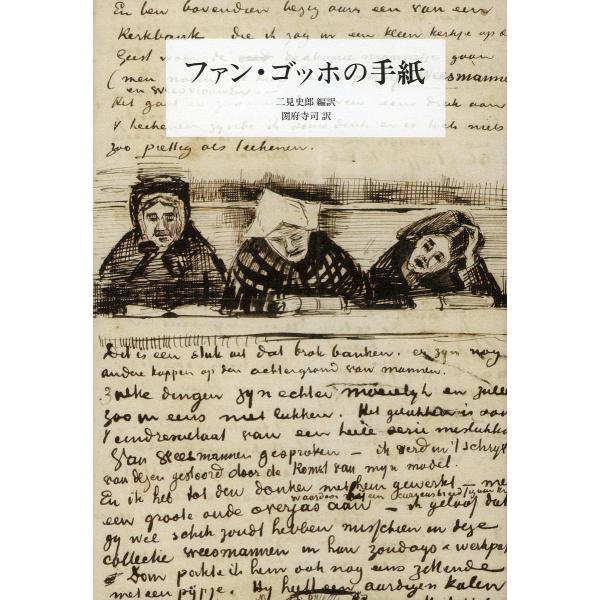 En ben bovendien bezig aan een van een
Kerkbank die ik zag in een klein kerkje op de
Geest
(men
weesmannen
Het gaat
ファン・ゴッホの手紙
二見史郎 編訳
圀府寺司 訳
zoo prettig als teekenen.
Dit is een stuk uit dat brok banken. er zijn nog
andere koppen op den achtergrond van mannen.
Zulke dingen zijn echter moeielyk en zulle
zoo in eens niet lukken. Het gelukken is soms
't eindresultaat van een heele serie mislukken
Van weesmannen gesproken – ik werd in 't schrijv
van dezen gestoord door de komst van mijn model.
En ik heb tot den donker met hem gewerkt – me
een groote oude overjas aan – ik geloof dat
gy wel schik zoudt hebben misschien in deze
collectie weesmannen in hun zondags & werkpak
Dom pakte ik hem ook nog eens zittende
met een pijpje. Hy heeft een aardigen kalen